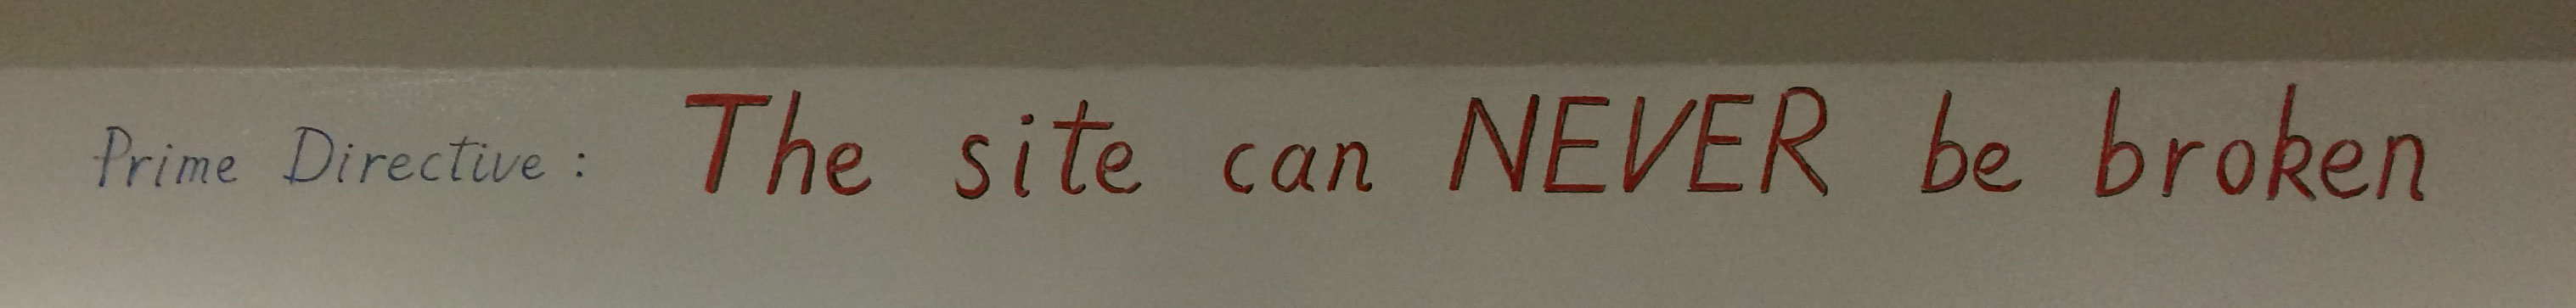 Prime Directive: The site can NEVER be broken